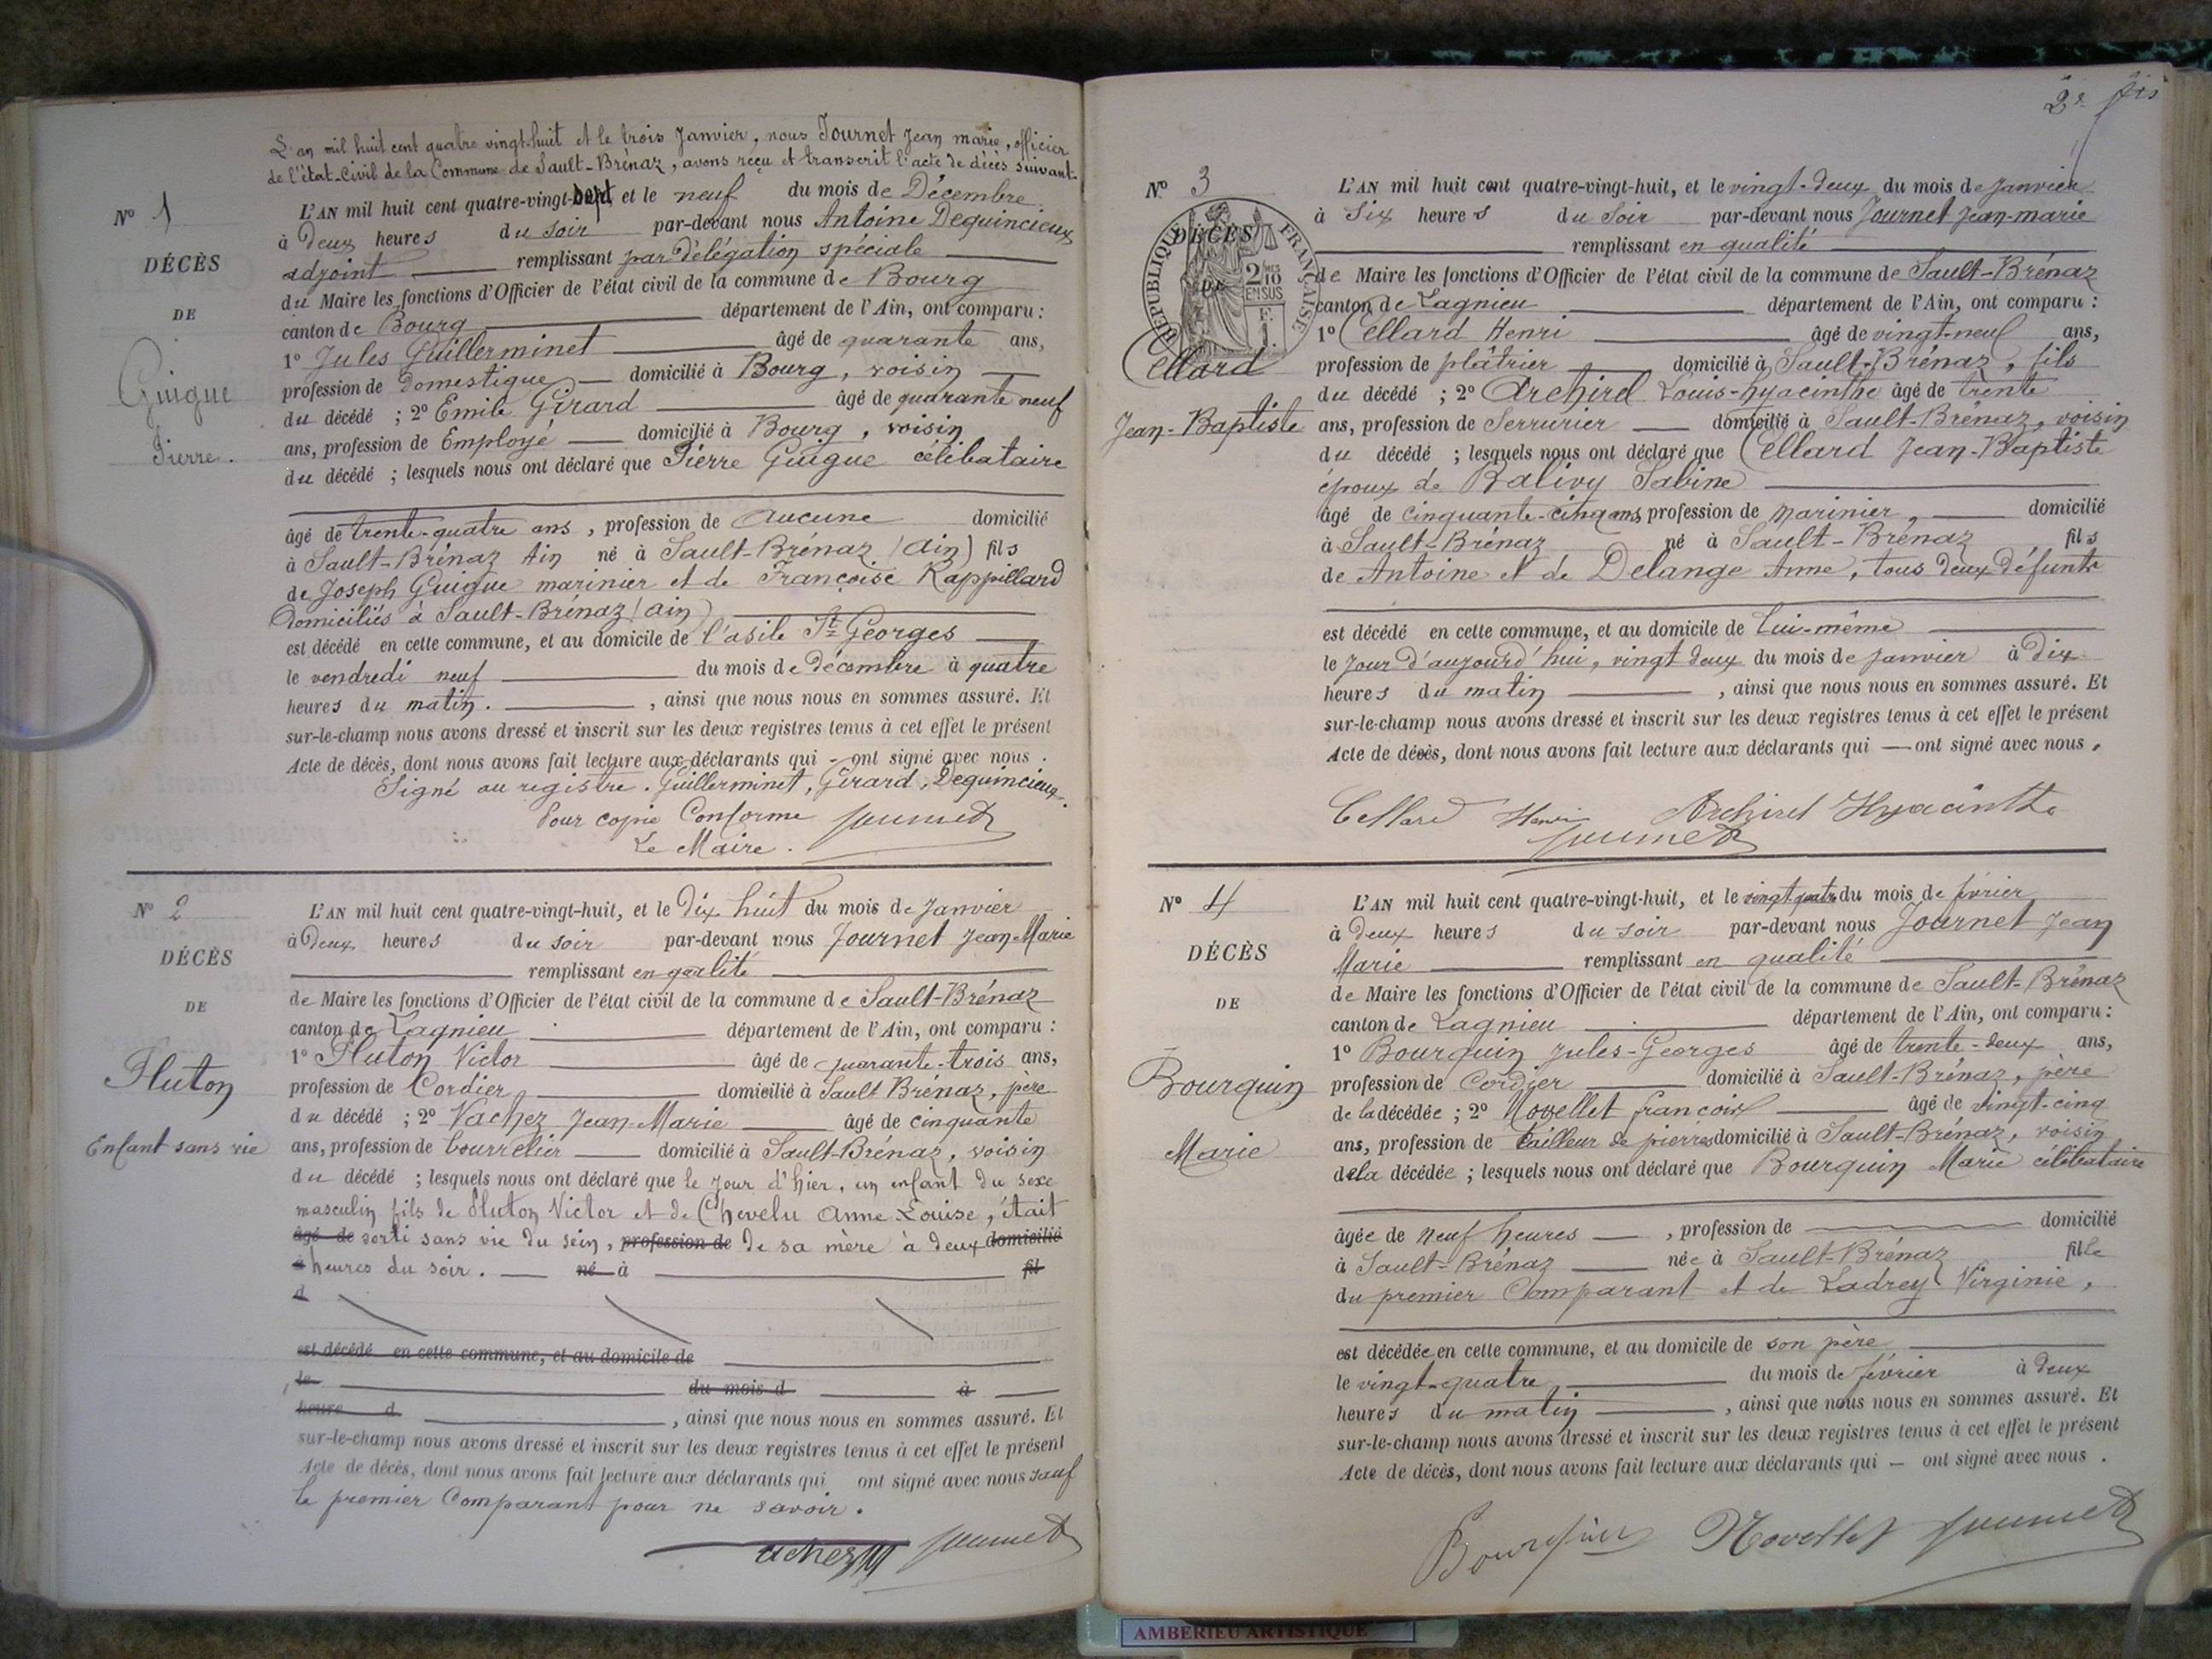 L'an mil huit cent quatre vingt-huit et le trois Janvier, nous Journet Jean marie, officier
de l'état-Civil de la Commune de Sault-Brénaz, avons reçu et transcrit l'acte de décès suivant.
N° 1
DÉCÈS
DE
Guigue
Pierre.
L'AN mil huit cent quatre-vingt-sept et le neuf du mois de Décembre
à Deux heures du soir par-devant nous Antoine Dequincieux
adjoint remplissant par délégation spéciale
du Maire les fonctions d'Officier de l'état civil de la commune de Bourg
canton de Bourg département de l'Ain, ont comparu :
1° Jules Guillerminet âgé de quarante ans,
profession de domestique domicilié à Bourg, voisin
du décédé ; 2° Emile Girard âgé de quarante neuf
ans, profession de Employé domicilié à Bourg, voisin
du décédé ; lesquels nous ont déclaré que Pierre Guigue célibataire
âgé de trente-quatre ans, profession de aucune domicilié
à Sault-Brénaz Ain né à Sault-Brénaz (Ain) fils
de Joseph Guigue marinier et de Françoise Rappillard
Domiciliés à Sault-Brénaz (ain)
est décédé en cette commune, et au domicile de l'asile St Georges
le vendredi neuf du mois de décembre à quatre
heures du matin. , ainsi que nous nous en sommes assuré. Et
sur-le-champ nous avons dressé et inscrit sur les deux registres tenus à cet effet le présent
Acte de décès, dont nous avons fait lecture aux déclarants qui - ont signé avec nous.
Signé au registre. Guillerminet, Girard, Dequincieux.
Pour copie Conforme Journet
Le Maire.
N° 2
DÉCÈS
DE
Pluton
Enfant sans vie
L'AN mil huit cent quatre-vingt-huit, et le Dix huit du mois de Janvier
à Deux heures du soir par-devant nous Journet Jean-Marie
remplissant en qualité
de Maire les fonctions d'Officier de l'état civil de la commune de Sault-Brénaz
canton de Lagnieu département de l'Ain, ont comparu :
1° Pluton Victor âgé de quarante-trois ans,
profession de Cordier domicilié à Sault Brénaz, père
du décédé ; 2° Vachez Jean-Marie âgé de cinquante
ans, profession de bourrelier domicilié à Sault-Brénaz, voisin
du décédé ; lesquels nous ont déclaré que le jour d'hier, un enfant du sexe
masculin fils de Pluton Victor et de Chevelu Anne Louise, était
âgé de sorti sans vie du sein, profession de de sa mère à deux domicilié
à heures du soir. né à fil
d
est décédé en cette commune, et au domicile de
le du mois d à
heure d , ainsi que nous nous en sommes assuré. Et
sur-le-champ nous avons dressé et inscrit sur les deux registres tenus à cet effet le présent
Acte de décès, dont nous avons fait lecture aux déclarants qui ont signé avec nous sauf
le premier Comparant pour ne savoir.
Journet
2e
N° 3
DÉCÈS
DE
RÉPUBLIQUE FRANÇAISE
2/10
EN SUS
Cellard
Jean-Baptiste
L'AN mil huit cent quatre-vingt-huit, et le vingt-deux du mois de Janvier
à Six heures du Soir par-devant nous Journet Jean-marie
remplissant en qualité
de Maire les fonctions d'Officier de l'état civil de la commune de Sault-Brénaz
canton de Lagnieu département de l'Ain, ont comparu :
1° Cellard Henri âgé de vingt-neuf ans,
profession de plâtrier domicilié à Sault-Brénaz, fils
du décédé ; 2° Archirel Louis-hyacinthe âgé de trente
ans, profession de Serrurier domicilié à Sault-Brénaz, voisin
du décédé ; lesquels nous ont déclaré que Cellard Jean-Baptiste
époux de Balivy Sabine
âgé de cinquante-cinq ans, profession de marinier, domicilié
à Sault-Brénaz né à Sault-Brénaz fils
de Antoine et de Delange Anne, tous deux défunts
est décédé en cette commune, et au domicile de Lui-même
le jour d'aujourd'hui, vingt deux du mois de Janvier à Dix
heures du matin , ainsi que nous nous en sommes assuré. Et
sur-le-champ nous avons dressé et inscrit sur les deux registres tenus à cet effet le présent
Acte de décès, dont nous avons fait lecture aux déclarants qui — ont signé avec nous.
Cellard Henri Archirel Hyacinthe
Journet
N° 4
DÉCÈS
DE
Bourquin
Marie
L'AN mil huit cent quatre-vingt-huit, et le vingt quatre du mois de février
à deux heures du soir par-devant nous Journet Jean
Marie remplissant en qualité
de Maire les fonctions d'Officier de l'état civil de la commune de Sault-Brénaz
canton de Lagnieu département de l'Ain, ont comparu :
1° Bourquin Jules-Georges âgé de trente-deux ans,
profession de Cordier domicilié à Sault-Brénaz, père
de la décédée ; 2° Novellet françois âgé de vingt-cinq
ans, profession de tailleur de pierres domicilié à Sault-Brénaz, voisin
de la décédée ; lesquels nous ont déclaré que Bourquin Marie célibataire
âgée de neuf heures , profession de domicilié
à Sault-Brénaz née à Sault-Brénaz fille
du premier Comparant et de Ladrey Virginie,
est décédée en cette commune, et au domicile de son père
le vingt-quatre du mois de février à deux
heures du matin , ainsi que nous nous en sommes assuré. Et
sur-le-champ nous avons dressé et inscrit sur les deux registres tenus à cet effet le présent
Acte de décès, dont nous avons fait lecture aux déclarants qui — ont signé avec nous.
Bourquin Novellet Journet
AMBÉRIEU ARTISTIQUE